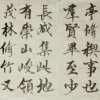 亭脩稧事也
羣賢畢至少
長咸集此地
有崇山峻領
茂林脩竹又